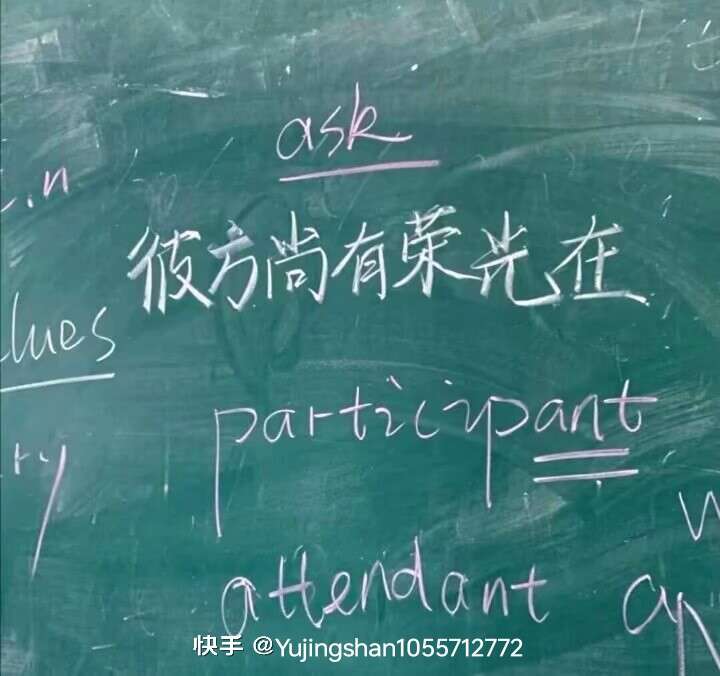 ask
彼方尚有荣光在
participant
attendant
快手 @Yujingshan1055712772